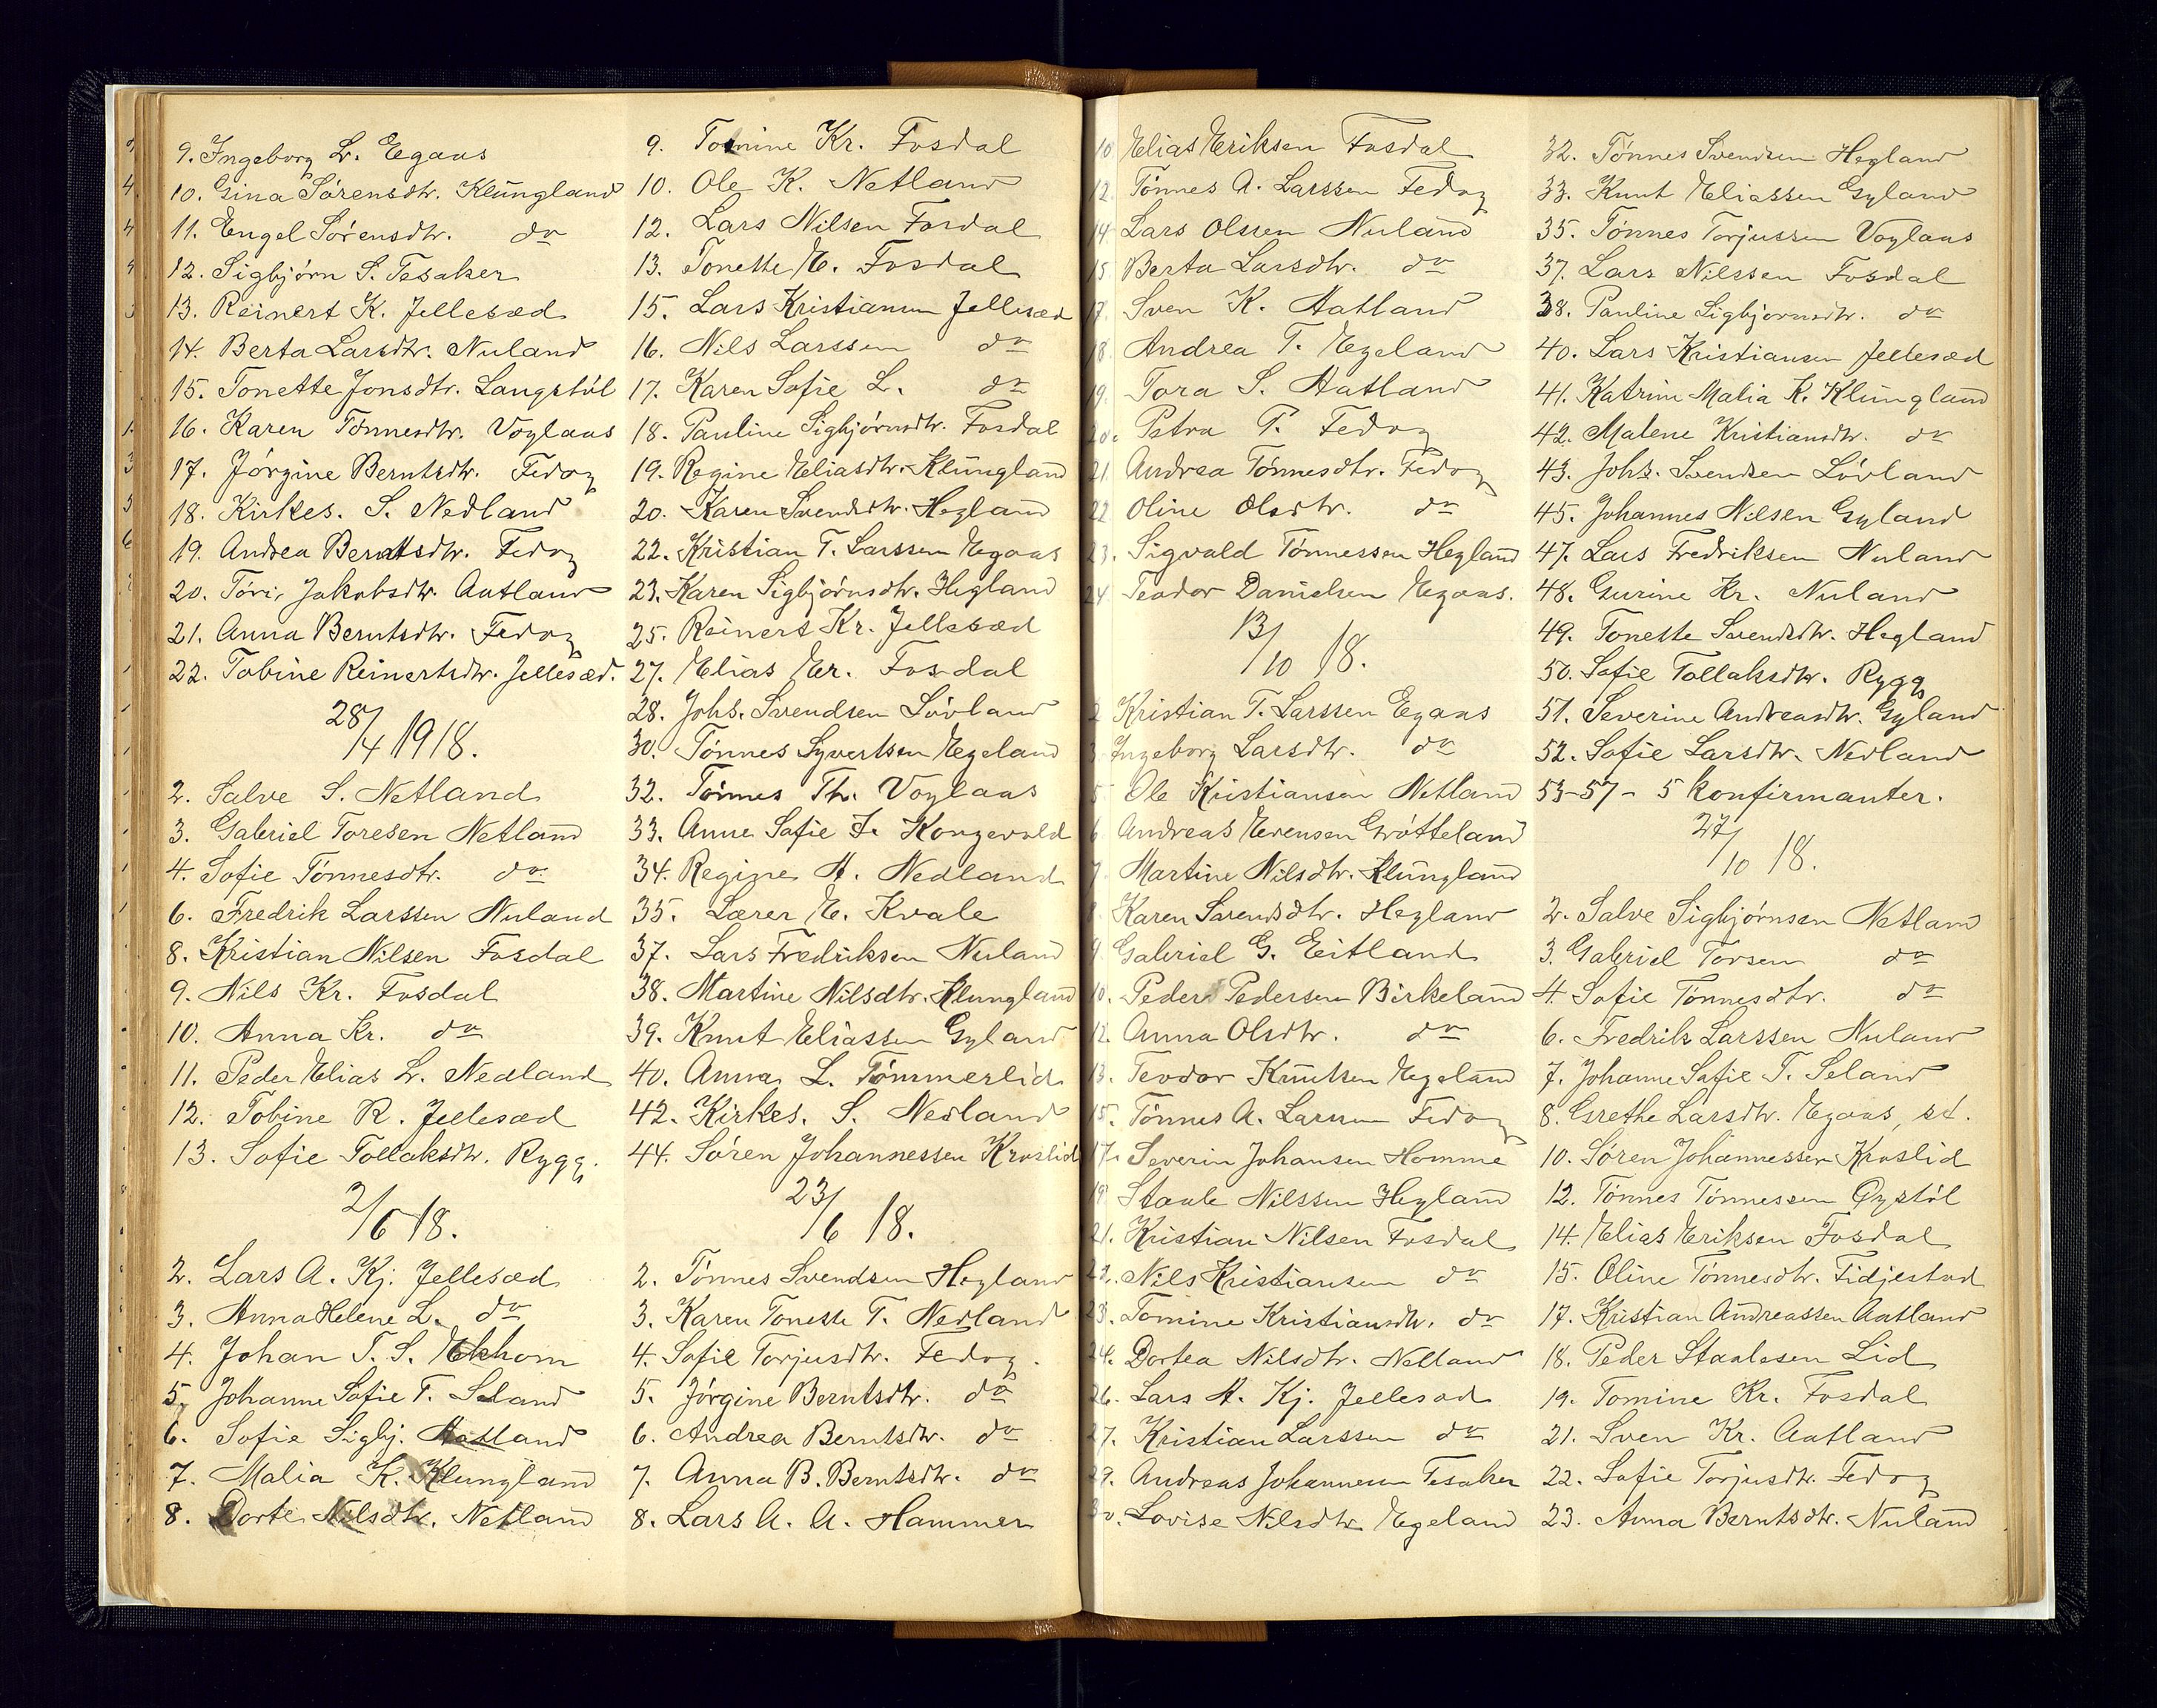 9. Ingeborg L. Egaas
10. Gina Sørensdtr. Klungland
11. Engel Sørensdtr. do
12. Sigbjørn S. Tesaker
13. Reinert K. Jellesæd
14. Berta Larsdtr. Nuland
15. Tonette Jonsdtr. Langstøl
16. Karen Tønnesdtr. Voglaas
17. Jørgine Berntsdtr. Fedog
18. Kirkes. S. Nedland
19. Andrea Berntsdtr. Fedog
20. Tøri Jakobsdtr. Aatland
21. Anna Berntsdtr. Fedog
22. Tobine Reinertsdtr. Jellesæd.
28/4 1918.
2. Salve S. Netland
3. Gabriel Toresen Netland
4. Sofie Tønnesdtr. do
6. Fredrik Larssen Nuland
8. Kristian Nilsen Fosdal
9. Nils Kr. Fosdal
10. Anna Kr. do
11. Peder Elias L. Nedland
12. Tobine R. Jellesæd
13. Sofie Tollaksdtr. Rygg.
2/6 18.
2. Lars A. Kj. Jellesæd
3. Anna Helene L. do
4. Johan T. S. Ekhom
5. Johanne Sofie T. Seland
6. Sofie Sigbj. Hatland
7. Malia K. Klungland
8. Dorte Nilsdtr. Netland
9. Tomine Kr. Fosdal
10. Ole K. Netland
12. Lars Nilsen Fosdal
13. Tonette E. Fosdal
15. Lars Kristiansen Jellesæd
16. Nils Larssen do
17. Karen Sofie L. do
18. Pauline Sigbjørnsdtr. Fosdal
19. Regine Eliasdtr. Klungland
20. Karen Svendsdtr. Hegland
22. Kristian T. Larssen Egaas
23. Karen Sigbjørnsdtr. Hegland
25. Reinert Kr. Jellesæd
27. Elias Er. Fosdal
28. Johs. Svendsen Løvland
30. Tønnes Syvertsen Egeland
32. Tønnes Th. Voglaas
33. Anne Sofie J. Kongevold
34. Regine A. Nedland
35. Lærer E. Kvale
37. Lars Fredriksen Nuland
38. Martine Nilsdtr. Klungland
39. Knut Eliassen Gyland
40. Anna L. Tømmerlid
42. Kirkes. S. Nedland
44. Søren Johannessen Kroslid
23/6 18.
2. Tønnes Svendsen Hegland
3. Karen Tonette T. Nedland
4. Sofie Torjusdtr. Fedog.
5. Jørgine Berntsdtr. do
6. Andrea Berntsdtr. do
7. Anna B. Berntsdtr. do
8. Lars A. A. Hammer
10 Elias Eriksen Fosdal
12. Tønnes A. Larssen Fedog
14 Lars Olssen Nuland
15 Berta Larsdtr. do
17. Sven K. Aatland
18 Andrea T. Egeland
19. Tora S. Aatland
20. Petra T. Fedog
21. Andrea Tønnesdtr. Fedog
22 Oline Olsdtr. do
23. Sigvald Tønnessen Hegland
24 Teodor Danielsen Egaas.
13/10 18.
2 Kristian T. Larssen Egaas
3 Ingeborg Larsdtr. do
5 Ole Kristiansen Netland
6 Andreas Evensen Grøtteland
7 Martine Nilsdtr. Klungland
8 Karen Svendsdtr. Hegland
9 Gabriel G. Eitland
10. Peder Pedersen Birkeland
12. Anna Olsdtr. do
13. Teodor Knutsen Egeland
15. Tønnes A. Larssen Fedog
17. Severin Johansen Homme
19. Staale Nilssen Hegland
21. Kristian Nilsen Fosdal
22. Nils Kristiansen do
23. Tomine Kristiansdtr. do
24. Dortea Nilsdtr. Netland
26. Lars A. Kj. Jellesæd
27. Kristian Larssen do
29. Andreas Johannesen Tesaker
30. Lovise Nilsdtr. Egeland
32. Tønnes Svendsen Hegland
33. Knut Eliassen Gyland
35. Tønnes Torjussen Voglaas
37. Lars Nilssen Fosdal
38. Pauline Sigbjørnsdtr. do
40. Lars Kristiansen Jellesæd
41. Katrine Malia K. Klungland
42. Malene Kristiansdtr. do
43. Johs. Svendsen Løvland
45. Johannes Nilsen Gyland
47. Lars Fredriksen Nuland
48. Gurine Kr. Nuland
49. Tonette Svendsdtr. Hegland
50. Sofie Tollaksdtr. Rygg
51. Severine Andreasdtr. Gyland
52. Sofie Larsdtr. Nedland
53-57 - 5 konfirmanter.
27/10 18.
2. Salve Sigbjørnsen Netland
3. Gabriel Torsen do
4. Sofie Tønnesdtr. do
6. Fredrik Larssen Nuland
7. Johanne Sofie T. Seland
8. Grethe Larsdtr. Egaas,
10. Søren Johannessen Kroslid
12. Tønnes Tønnessen Øystøl
14. Elias Eriksen Fosdal
15. Oline Tønnesdtr. Fidjestad
17. Kristian Andreassen Aatland
18. Peder Staalesen Lid
19. Tomine Kr. Fosdal
21. Sven Kr. Aatland
22. Sofie Torjusdtr. Fedog
23. Anna Berntsdtr. Nuland